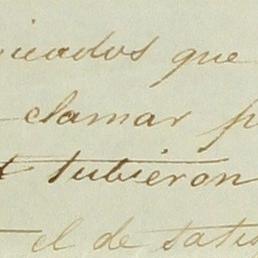 icados que
clamar p
tubieron
el de satis